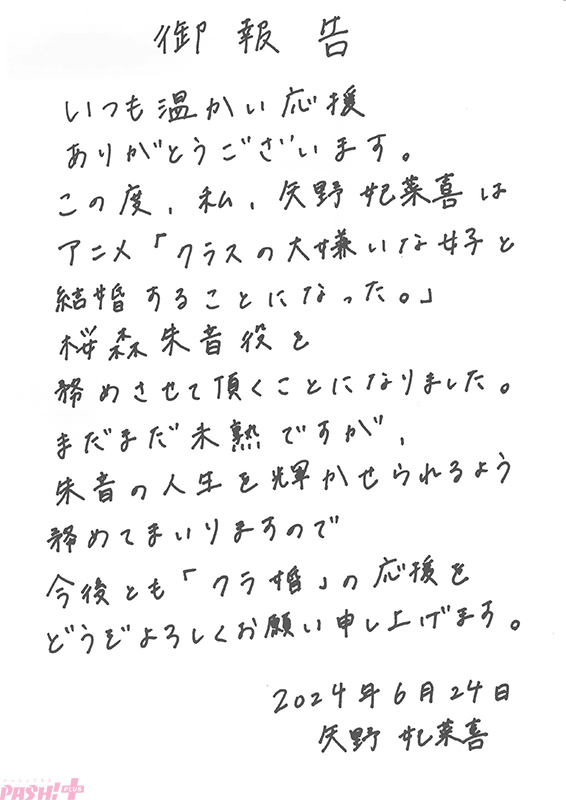 御報告
いつも温かい応援
ありがとうございます。
この度、私、矢野妃菜喜は
アニメ「クラスの大嫌いな女子と
結婚することになった。」
桜森朱音役を
務めさせて頂くことになりました。
まだまだ未熟ですが、
朱音の人生を輝かせられるよう
務めてまいりますので
今後とも「クラ婚」の応援を
どうぞよろしくお願い申し上げます。
2024年6月24日
矢野妃菜喜
PASH! PLUS